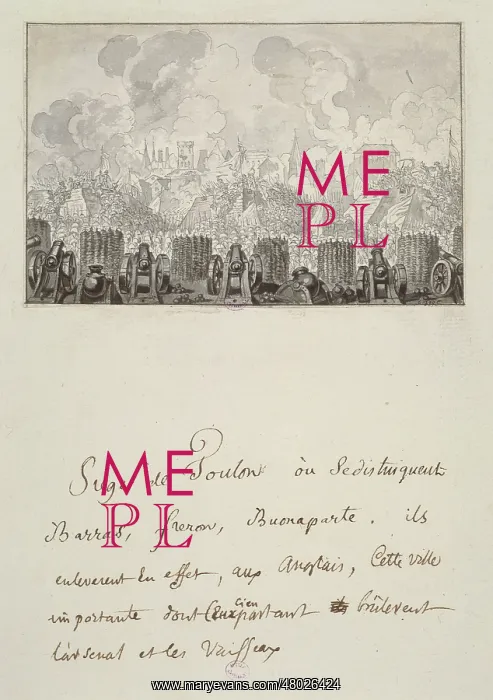 ME
PL
Siege de Toulon où Se distinguent
ME
PL
Barras, freron, Buonaparte. ils
enleverent En effet, aux Anglais, Cette ville
importante dont Ceux cien partant brûlerent
l'arsenal et les Vaisseaux
www.maryevans.com/48026424